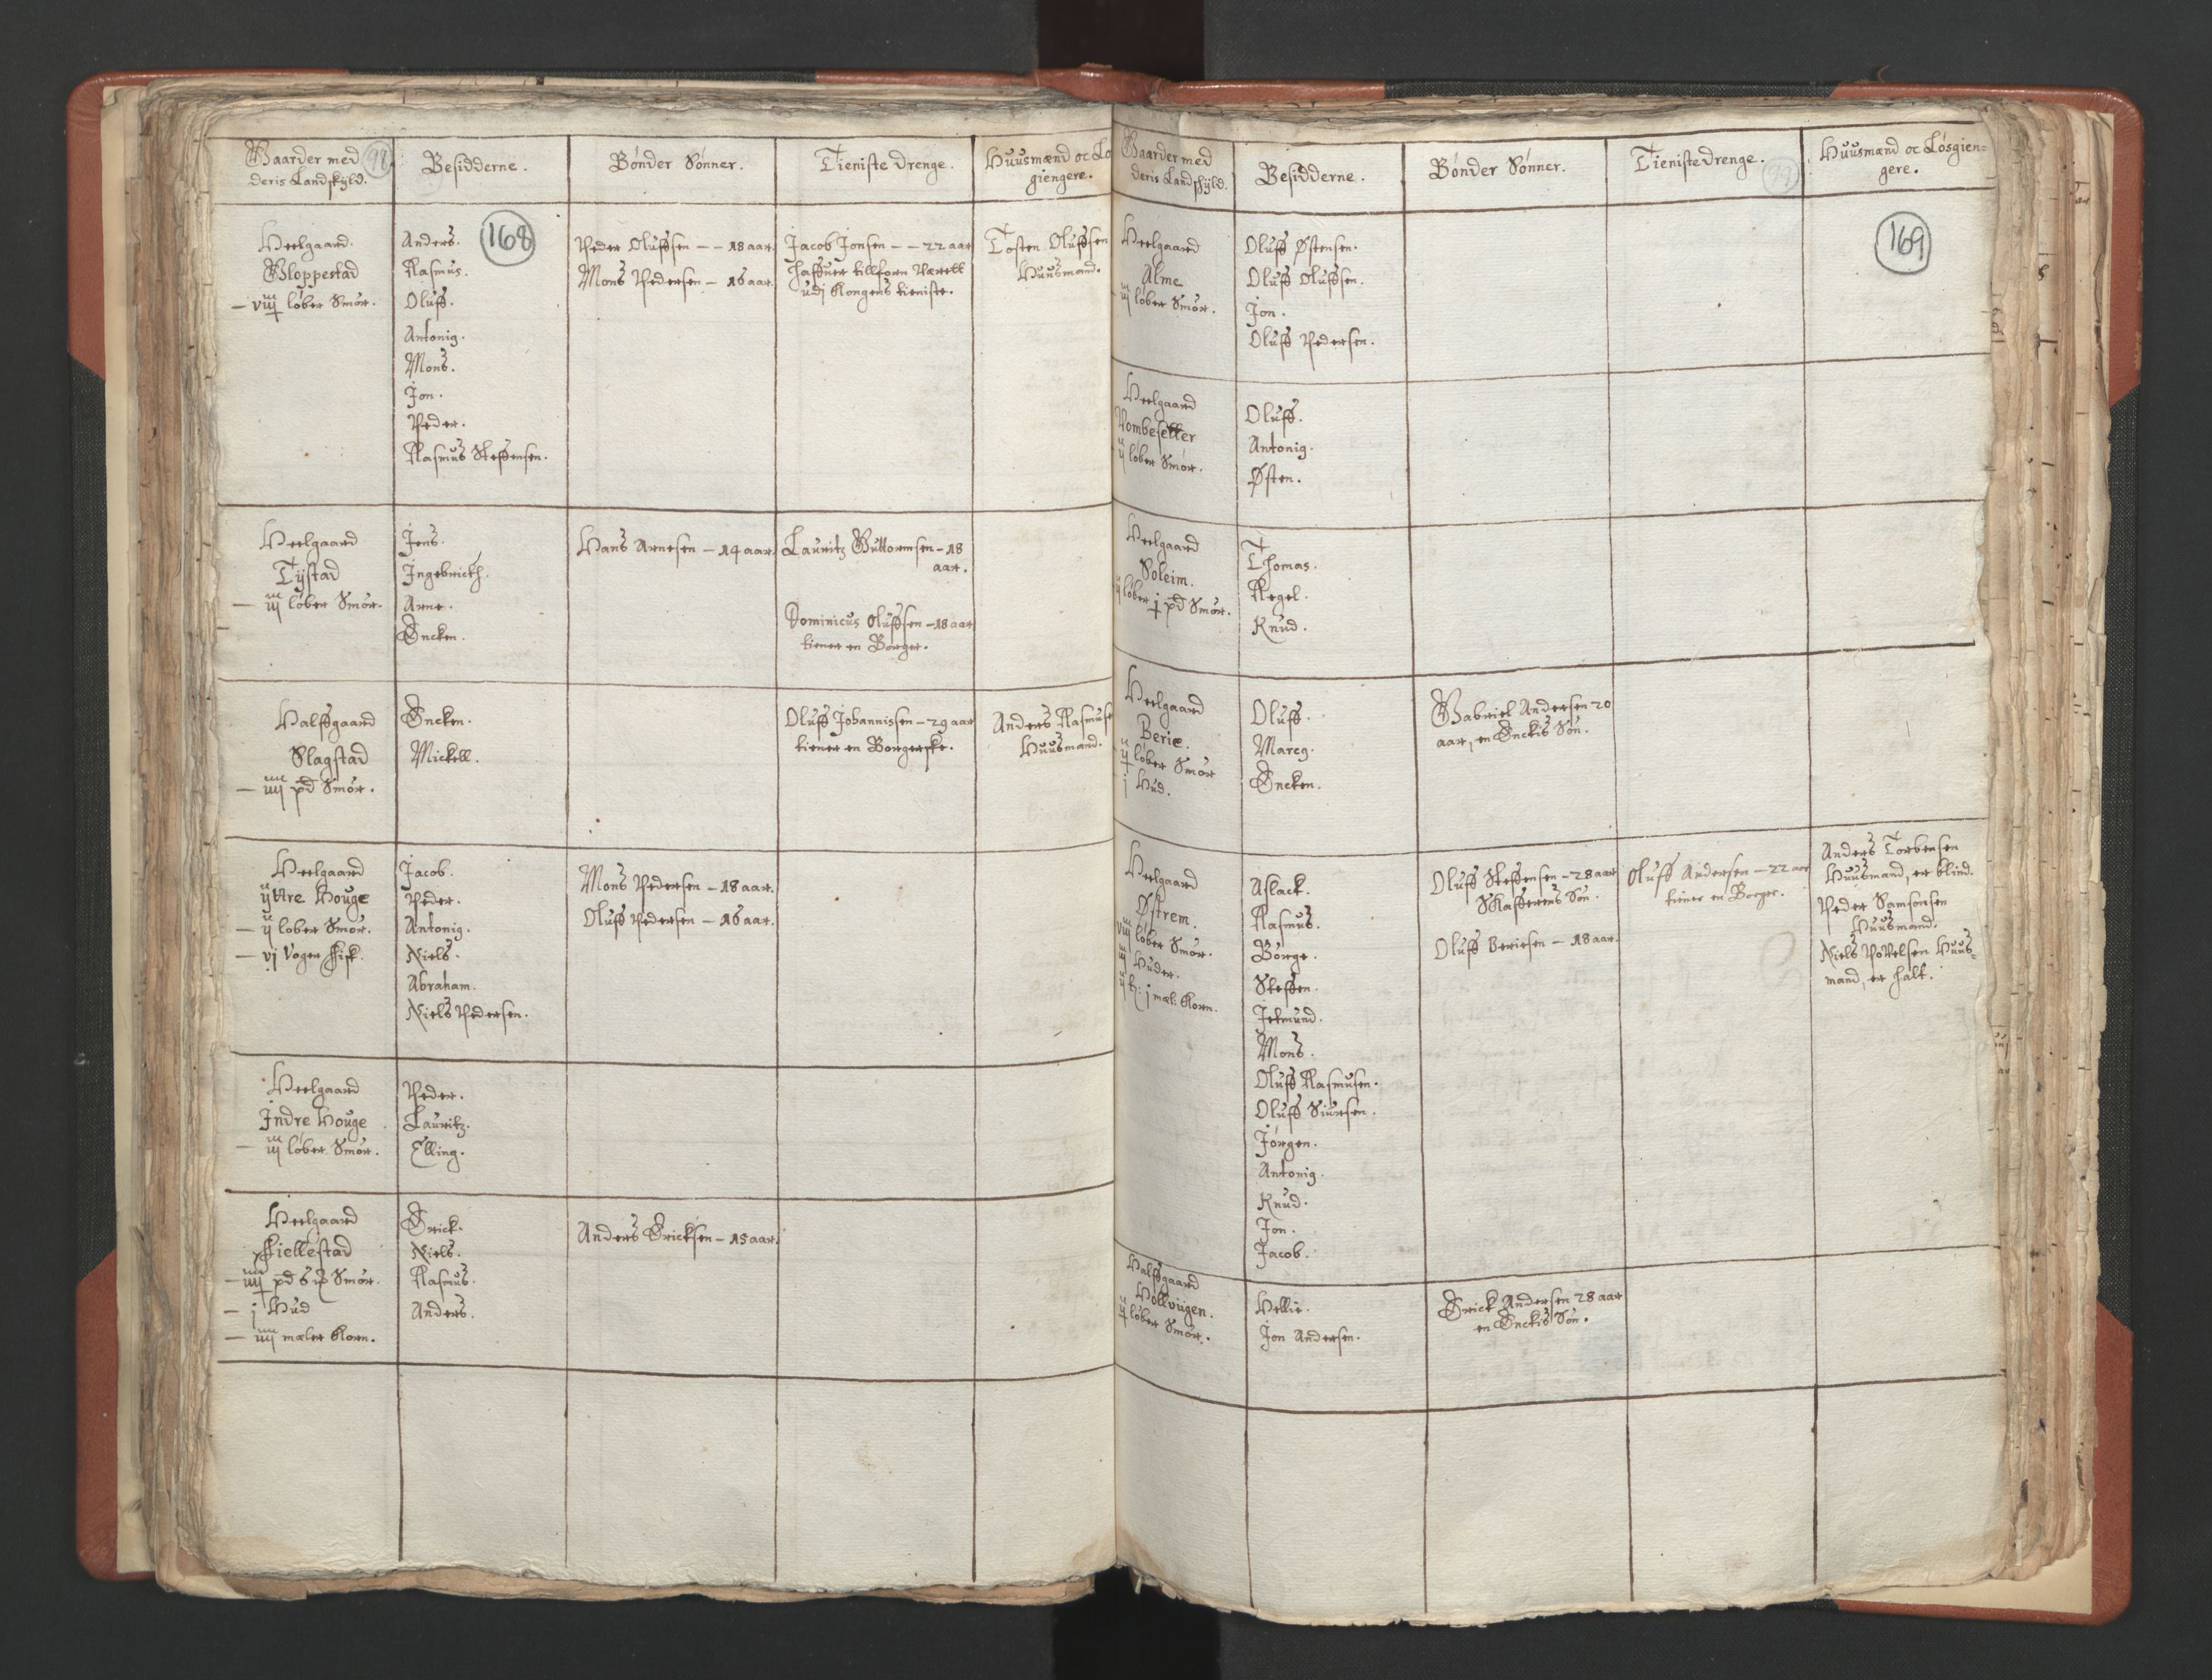 Gaarder med
deris Landskyld.
98
Besidderne.
Bønder Sønner.
Tieniste Drenge.
Huusmænd oc Lø
giengere.
168
Heelgaard.
Gloppestad
– viij løber Smør.
Anders.
Rasmus.
Oluff.
Antonig.
Mons.
Jon.
Peder.
Rasmus Steffensen.
Peder Oluffsen – – 18 aar.
Mons Pedersen – 16 aar.
Jacob Jonsen – – 22 aar
haffuer tillforn Værett
udj Kongens tieniste.
Tosten Oluffsen
Huusmand.
Heelgaard
Tystad
– iij løber Smør.
Jens.
Ingebrickt.
Arne.
Encken.
Hans Arnesen – 14 aar.
Lauritz Guttormsen – 18
aar.
Dominicus Oluffsen – 18 aar
tiener en Borger.
Halffgaard
Slagstad
– iiij pd Smør.
Encken.
Mickell.
Oluff Johannissen – 29 aar
tiener en Borgerske.
Anders Rasmuse
Huusmand.
Heelgaard
yttre Houge
– ij løber Smør.
– vj Voger fisk.
Jacob.
Peder.
Antonig.
Niels.
Abraham.
Niels Pedersen.
Mons Pedersen – 18 aar.
Oluff Pedersen – 16 aar.
Heelgaard
Indre Houge
– iij løber Smør.
Peder.
Lauritz.
Elling.
Heelgaard
Fiellestad
– iiij pd 6 Smør.
– j Hud
– iiij mæler Korn.
Erick.
Niels.
Rasmus.
Anders.
Anders Ericksen – 15 aar.
Gaarder med
deris Landskyld.
Besidderne.
Bønder Sønner.
Tieniste Drenge.
99
Huusmænd oc Løsgien=
gere.
169
Heelgaard
Alme
iij løber Smør.
Oluff Østensen.
Oluff Oluffsen.
Jon.
Oluff Pedersen.
Heelgaard
Vombesetter
ij løber Smør.
Oluff.
Antonig.
Østen.
Heelgaard
Soleim.
ij løber j pd Smør.
Thomas.
Regel.
Knud.
Heelgaard
Berie.
ij løber Smør
j Hud.
Oluff.
Marcg.
Encken.
Gabriel Andersen 20
aar, en Enckis Søn.
Heelgaard
Østrem.
viij løber Smør.
iij Huder.
j mæl: Korn.
Aslack.
Rasmus.
Børge.
Steffen.
Jetmund.
Mons.
Oluff Rasmusen.
Oluff Siursen.
Jørgen.
Antonig.
Knud.
Jon.
Jacob.
Oluff Steffensen – 28 aar
Skafferens Søn.
Oluff Beriesen – 18 aar.
Oluff Andersen – 22 aar
tiener en Borger.
Anders Torbensen
Huusmand, er blind.
Peder Samsonsen
Huusmand.
Niels Povelsen Huus=
mand, er halt.
Halffgaard
Hollvugen.
ij løber Smør.
Hellie.
Jon Andersen.
Erick Andersen 28 aar
en Enckis Søn.